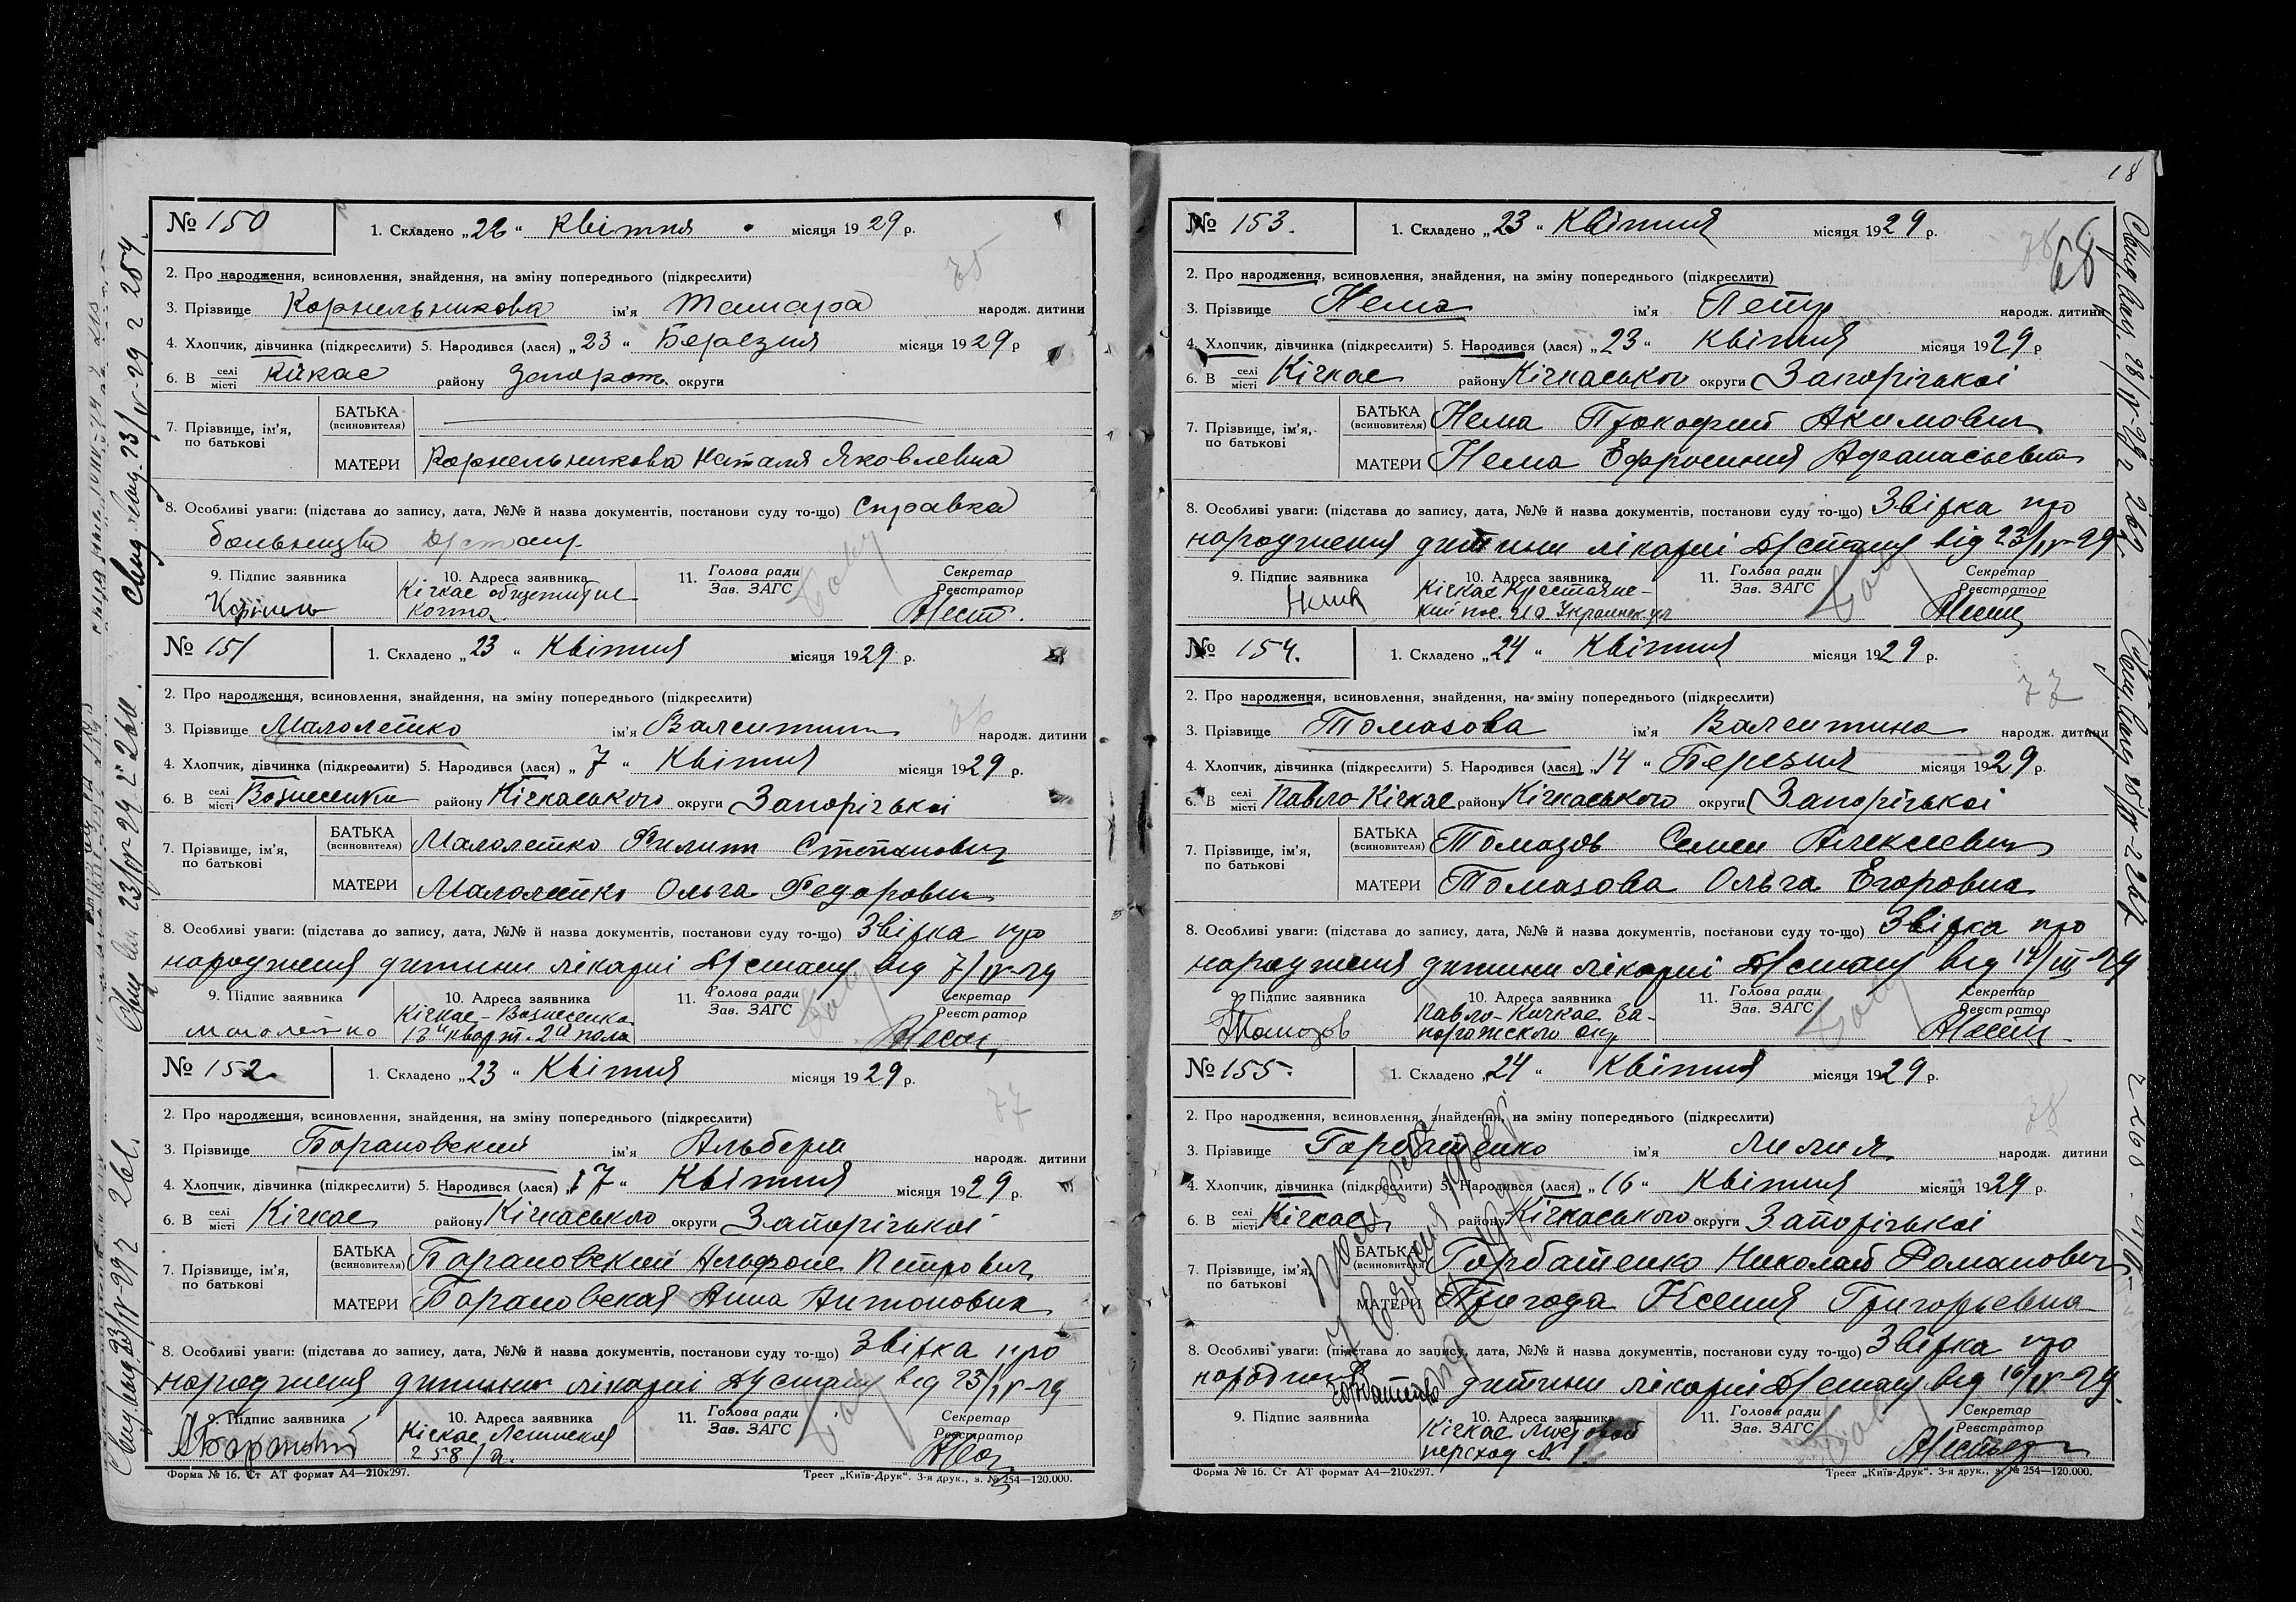 № 150
1. Складено „22“ Квітня місяця 1929 р.
2. Про народження, всиновлення, знайдення, на зміну попереднього (підкреслити)
75
3. Прізвище Корнельникова ім'я Тамара народж. дитини
4. Хлопчик, дівчинка (підкреслити) 5. Народився (лася) „23“ Березня місяця 1929 р
6. В селі місті Кічкас району Запорож. округи
7. Прізвище, ім'я, по батькові
БАТЬКА (всиновителя)
МАТЕРИ Корнельникова Наталя Яковлевна
8. Особливі уваги: (підстава до запису, дата, №№ й назва документів, постанови суду то-що) Справка
больницы
9. Підпис заявника
10. Адреса заявника Кічкас общежитие
11. Голова ради Зав. ЗАГС
Секретар Реєстратор
№ 151
1. Складено „23“ Квітня місяця 1929 р.
2. Про народження, всиновлення, знайдення, на зміну попереднього (підкреслити)
76
3. Прізвище Малолетко ім'я Валентина народж. дитини
4. Хлопчик, дівчинка (підкреслити) 5. Народився (лася) „7“ Квітня місяця 1929 р.
6. В селі місті Вознесенка району Кічкаського округи Запорізької
7. Прізвище, ім'я, по батькові
БАТЬКА (всиновителя) Малолетко Филипп Степанович
МАТЕРИ Малолетко Ольга Федоровна
8. Особливі уваги: (підстава до запису, дата, №№ й назва документів, постанови суду то-що) Звірка про
народження дитини лікарні від 7/IV-29
9. Підпис заявника Малолетко
10. Адреса заявника Кічкас-Вознесенка
11. Голова ради Зав. ЗАГС
Секретар Реєстратор
№ 152
1. Складено „23“ Квітня місяця 1929 р.
2. Про народження, всиновлення, знайдення, на зміну попереднього (підкреслити)
77
3. Прізвище Барановский ім'я Альберт народж. дитини
4. Хлопчик, дівчинка (підкреслити) 5. Народився (лася) „17“ Квітня місяця 1929 р.
6. В селі місті Кічкас району Кічкаського округи Запорізької
7. Прізвище, ім'я, по батькові
БАТЬКА (всиновителя) Барановский Альфонс Петрович
МАТЕРИ Барановская Анна Антоновна
8. Особливі уваги: (підстава до запису, дата, №№ й назва документів, постанови суду то-що) Звірка про
народження дитини лікарні від 23/IV-29
9. Підпис заявника
10. Адреса заявника Кічкас Ленинская
258/а.
11. Голова ради Зав. ЗАГС
Секретар Реєстратор
Форма № 16. Ст АТ формат А4—210x297.
Трест „Київ-Друк“. 3-я друк., з. № 254—120.000.
18
№ 153.
1. Складено „23“ Квітня місяця 1929 р.
68
2. Про народження, всиновлення, знайдення, на зміну попереднього (підкреслити)
3. Прізвище Нема ім'я Петр народж. дитини
4. Хлопчик, дівчинка (підкреслити) 5. Народився (лася) „23“ Квітня місяця 1929 р
6. В селі місті Кічкас району Кічкаського округи Запорізької
7. Прізвище, ім'я, по батькові
БАТЬКА (всиновителя) Нема Прокофий Акимович
МАТЕРИ Нема Ефросиния Афанасьевна
8. Особливі уваги: (підстава до запису, дата, №№ й назва документів, постанови суду то-що) Звірка про
народження дитини лікарні від 23/IV-29
9. Підпис заявника
10. Адреса заявника Кічкас
11. Голова ради Зав. ЗАГС
Секретар Реєстратор
№ 154.
1. Складено „24“ Квітня місяця 1929 р.
2. Про народження, всиновлення, знайдення, на зміну попереднього (підкреслити)
77
3. Прізвище Томазова ім'я Валентина народж. дитини
4. Хлопчик, дівчинка (підкреслити) 5. Народився (лася) „14“ Березня місяця 1929 р.
6. В селі місті Павло-Кічкас району Кічкаського округи Запорізької
7. Прізвище, ім'я, по батькові
БАТЬКА (всиновителя) Томазов Семен Алексеевич
МАТЕРИ Томазова Ольга Егоровна
8. Особливі уваги: (підстава до запису, дата, №№ й назва документів, постанови суду то-що) Звірка про
народження дитини лікарні від 14/III-29
9. Підпис заявника Томазов
10. Адреса заявника Павло-Кичкас За-
порожского окр
11. Голова ради Зав. ЗАГС
Секретар Реєстратор
№ 155.
1. Складено „24“ Квітня місяця 1929 р.
2. Про народження, всиновлення, знайдення, на зміну попереднього (підкреслити)
78
3. Прізвище Горбатенко ім'я Лилия народж. дитини
4. Хлопчик, дівчинка (підкреслити) 5. Народився (лася) „16“ Квітня місяця 1929 р.
6. В селі місті Кічкас району Кічкаського округи Запорізької
7. Прізвище, ім'я, по батькові
БАТЬКА (всиновителя) Горбатенко Николай Романович
МАТЕРИ Пригода Ксения Григорьевна
8. Особливі уваги: (підстава до запису, дата, №№ й назва документів, постанови суду то-що) Звірка про
дитини лікарні від 16/IV-29
9. Підпис заявника Горбатенко
10. Адреса заявника Кічкас
переход № 1.
11. Голова ради Зав. ЗАГС
Секретар Реєстратор
Форма № 16. Ст. АТ формат А4—210x297.
Трест „Київ-Друк“. 3-я друк., з. № 254—120.000.